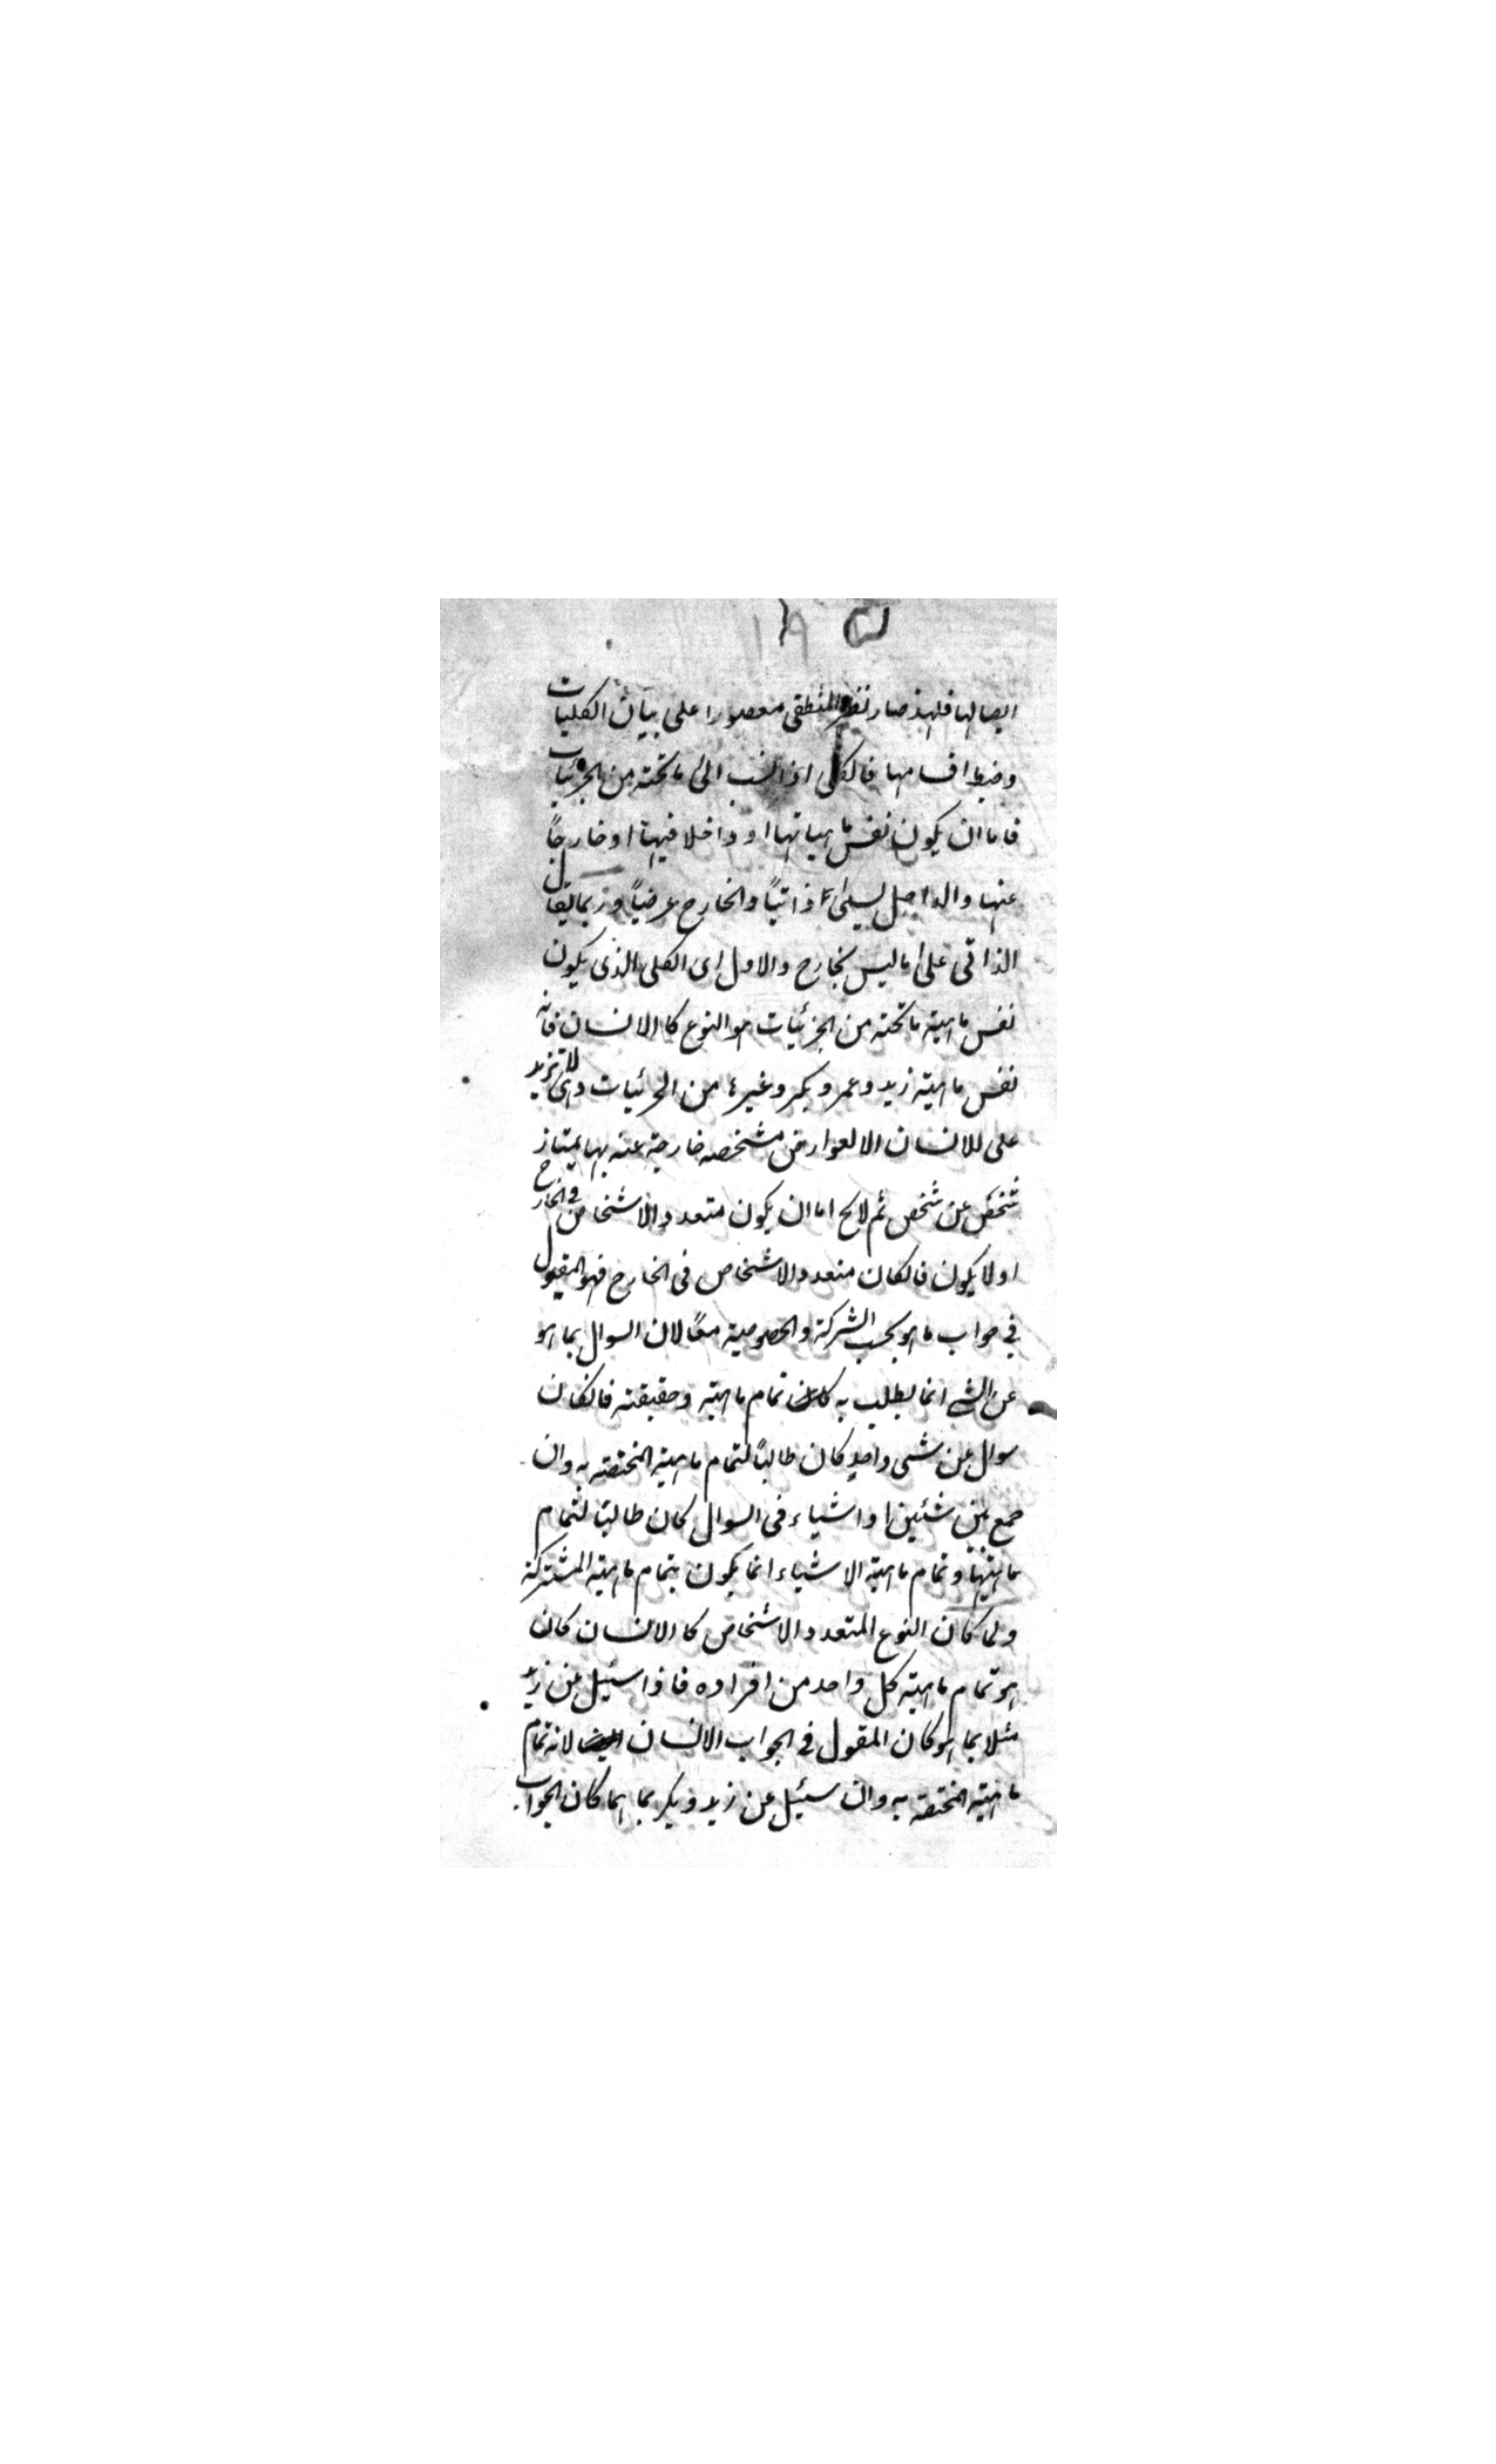 ايصالها فلهذ صار نظر المنطقى مقصورا على بيان الكليات
وضبط اقسامها فالكلى اذا نسب الى ما تحته من الجزئيات
فاما ان يكون نفس ماهياتها او داخلا فيها او خارجاً
عنها والداخل يسمى ذاتيًا والخارج عرضيًا وربما يقال
الذاتى على ما ليس بخارج والاول اى الكلى الذى يكون
نفس ماهية ما تحته من الجزئيات هو النوع كالانسان فانه
نفس ماهية زيد وعمرو وبكر وغيرها من الجزئيات وهى لا تزيد
على للانسان الا لعوارض مشخصه خارجة عنه بها يمتاز
شخص عن شخص ثم لا يخ اما ان يكون متعدد الاشخاص فى الخارج
اولا يكون فالكان متعدد الاشخاص فى الخارج فهو المقول
فى جواب ما هو بحسب الشركة والخصوصية معًا لان السوال بما هو
عن الشى انما يطلب به تمام ماهية وحقيقته فالكان
سوال عن شى واحد كان طالبًا لتمام ماهية المختصة به وان
جمع بين شئين او اشياء فى السوال كان طالبًا لتمام
ماهيتها وتمام ماهية الاشياء انما يكون بتمام ماهية المشتركة
ولما كان النوع المتعدد الاشخاص كالانسان كان
هو تمام ماهية كل واحد من افراده فاذا سئيل عن زيد
مثلا بما هو كان المقول فى الجواب الانسان لانه تمام
ماهية المختصة به وان سئيل عن زيد وبكر بما هما كان الجواب